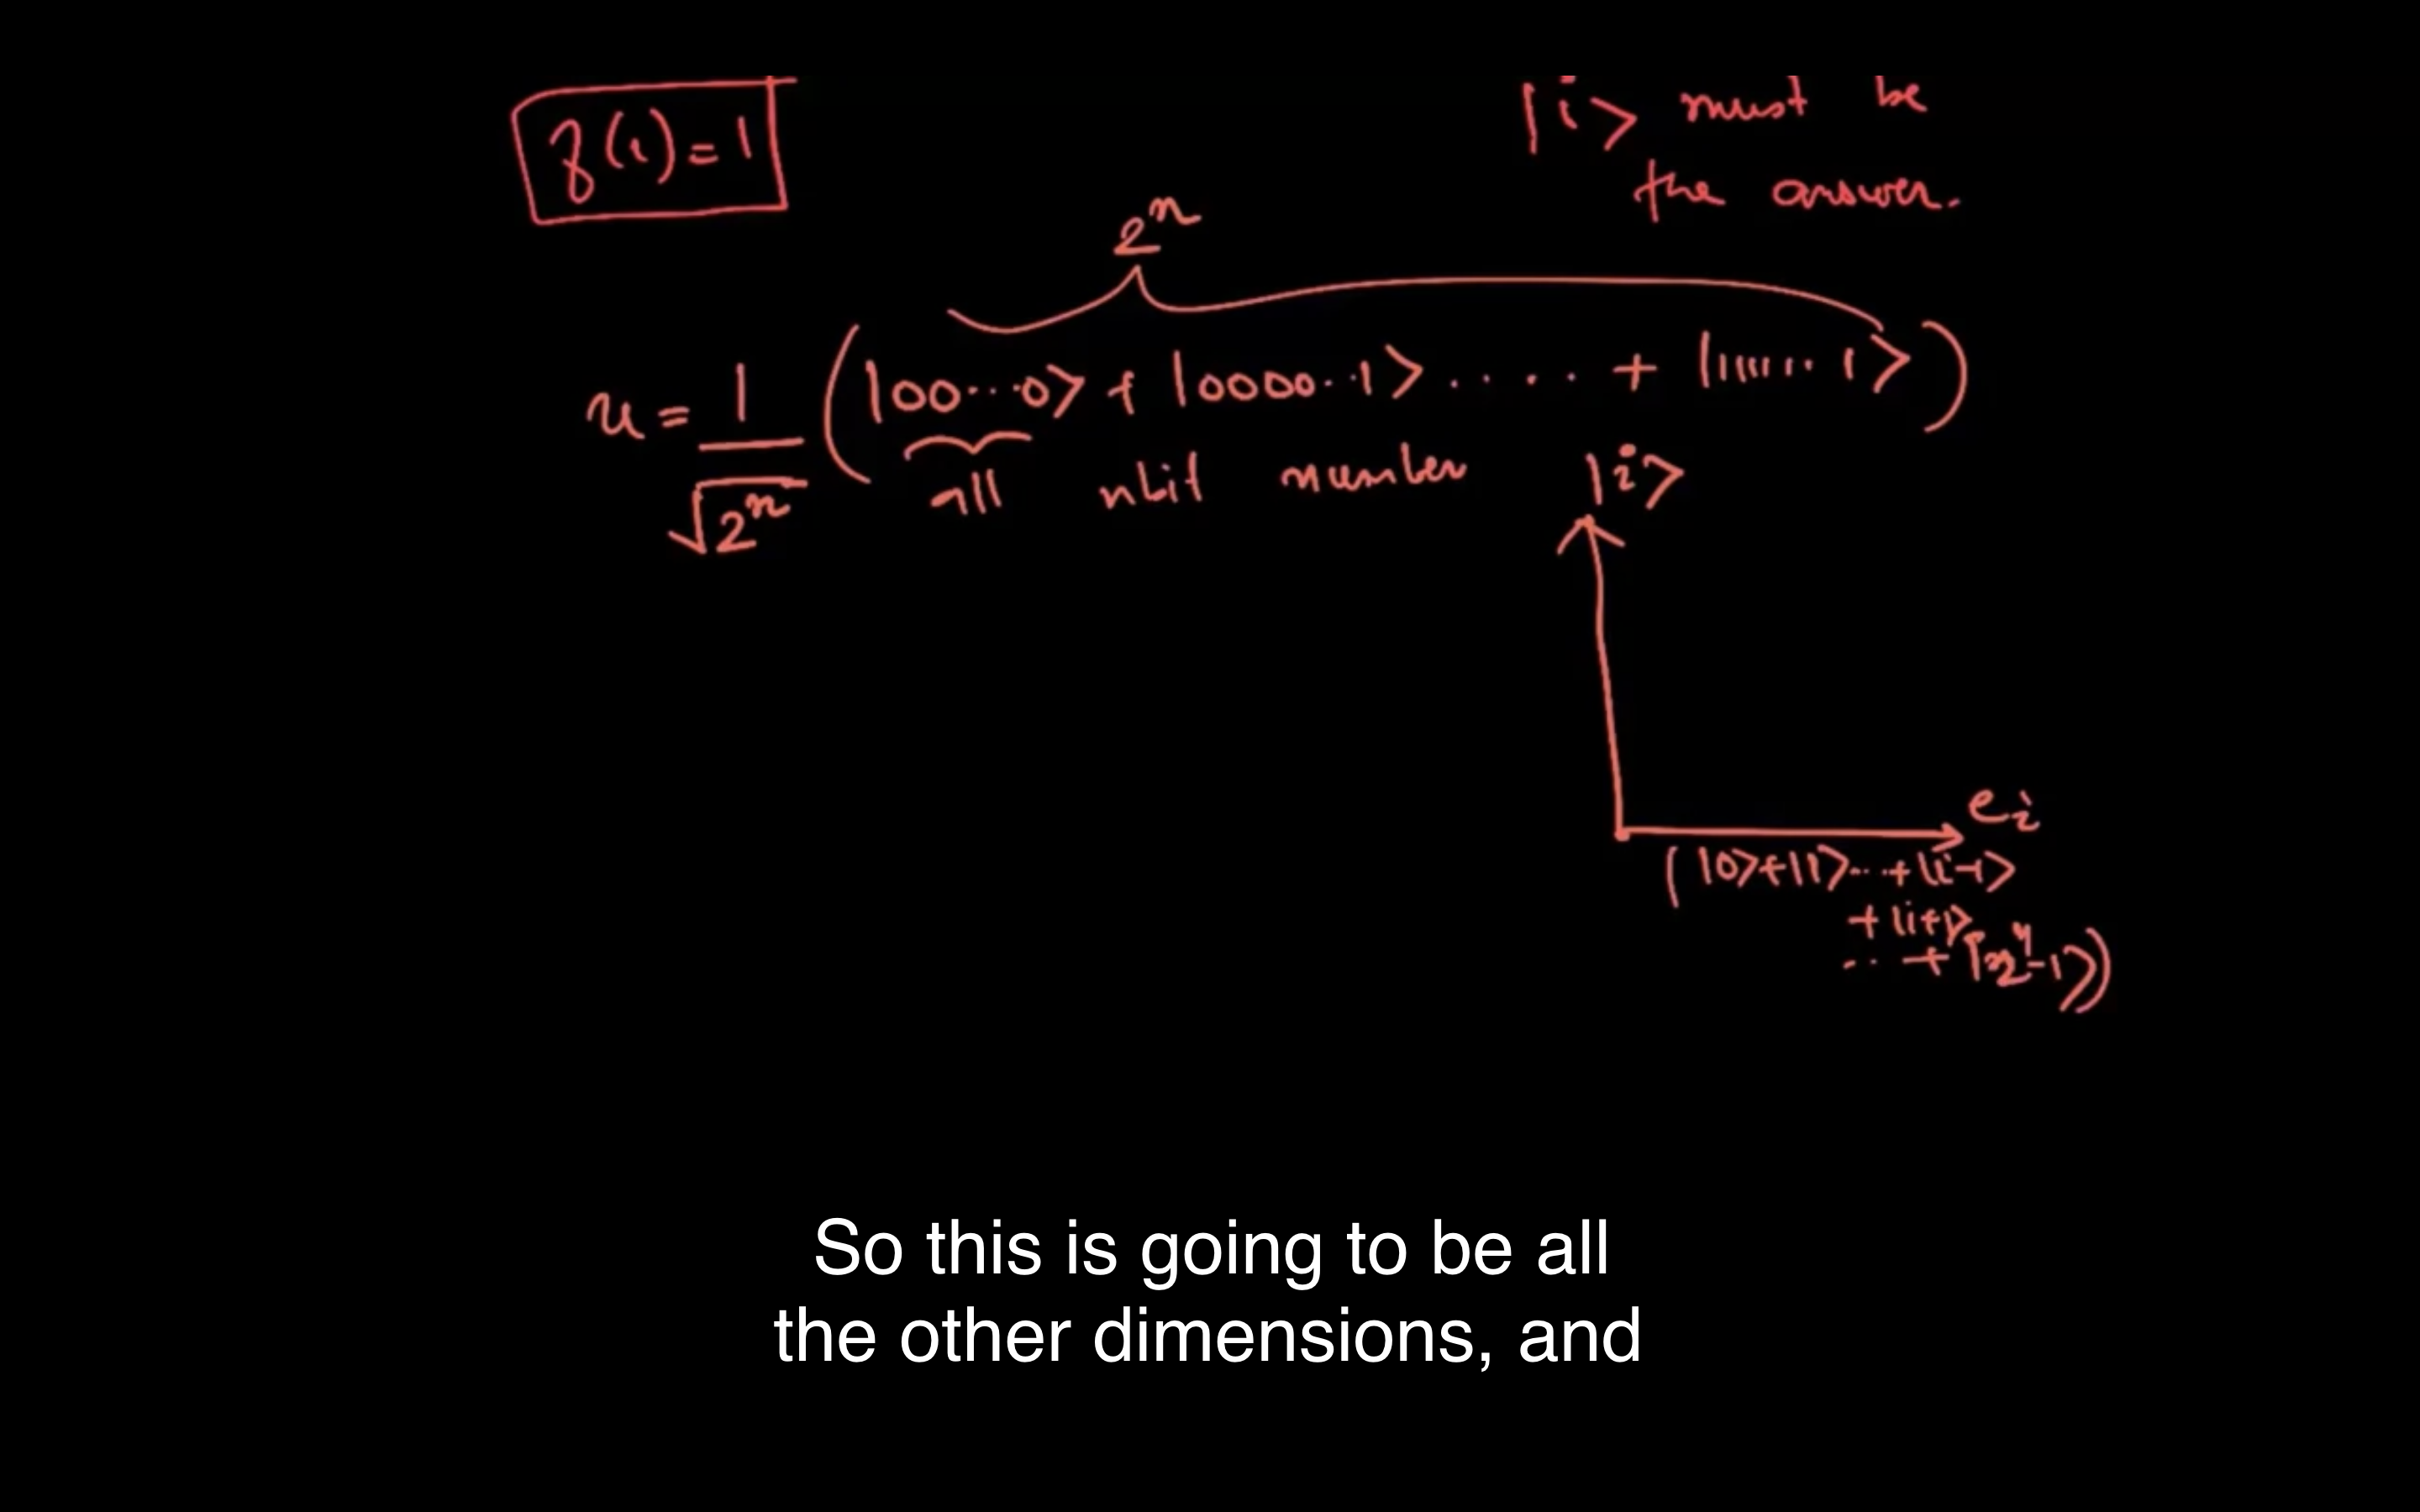 f(i) = 1
|i> must be
the answer.
2^n
u = 1/√2^n (|00...0> + |0000..1> .... + |11111...1>)
all nbit number
|i>
e_i
(|0>+|1>...+|i-1>
+|i+1>
...+|2^n-1>)
So this is going to be all
the other dimensions, and